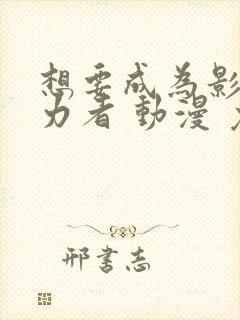 想要成為影
力者 動漫
邢書志